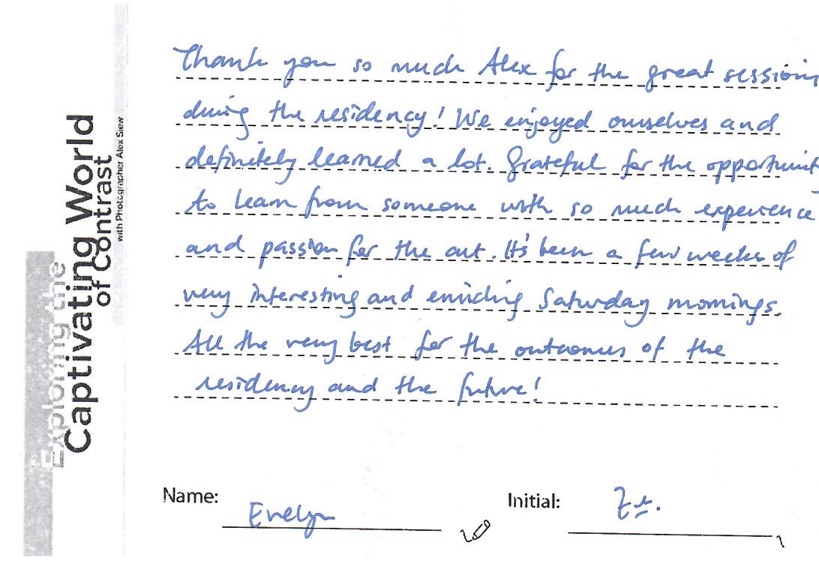 Exploring the
Captivating World
of Contrast
with Photographer Alex Siew
Thank you so much Alex for the great sessions
during the residency! We enjoyed ourselves and
definitely learned a lot. Grateful for the opportunit
to learn from someone with so much experience
and passion for the art. It's been a few weeks of
very interesting and enriching Saturday mornings.
All the very best for the outcomes of the
residency and the future!
Name: Evelyn
Initial: